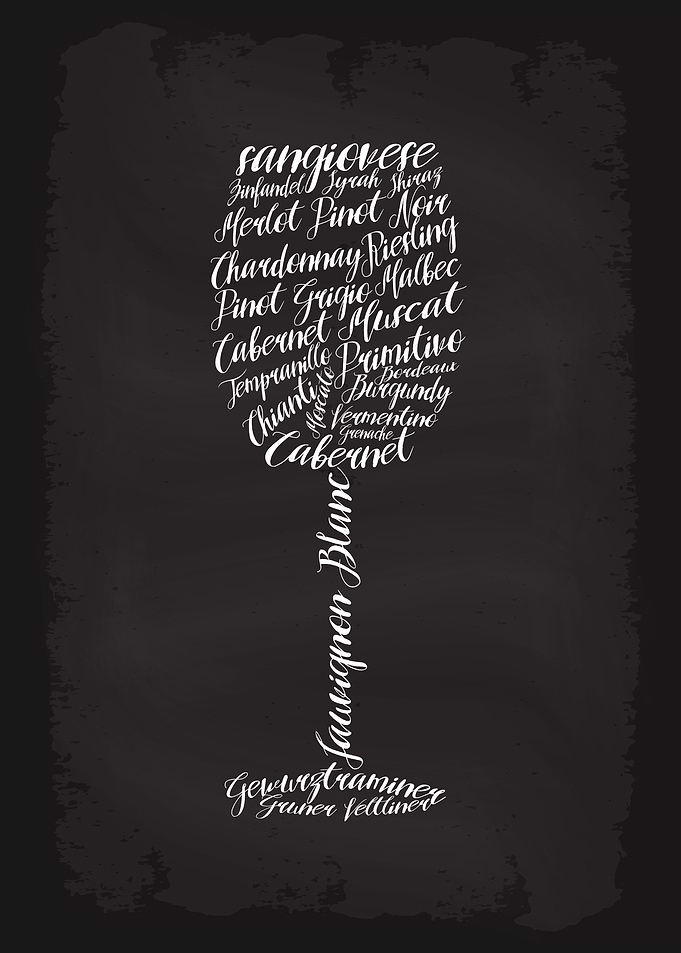 sangiovese
Zinfandel Syrah Shiraz
Merlot Pinot Noir
Chardonnay Riesling
Pinot Grigio Malbec
Cabernet Muscat
Tempranillo Primitivo
Bordeaux
Chianti Moscato Burgundy
Vermentino
Grenache
Cabernet
Sauvignon Blanc
Gewurztraminer
Gruner Veltliner